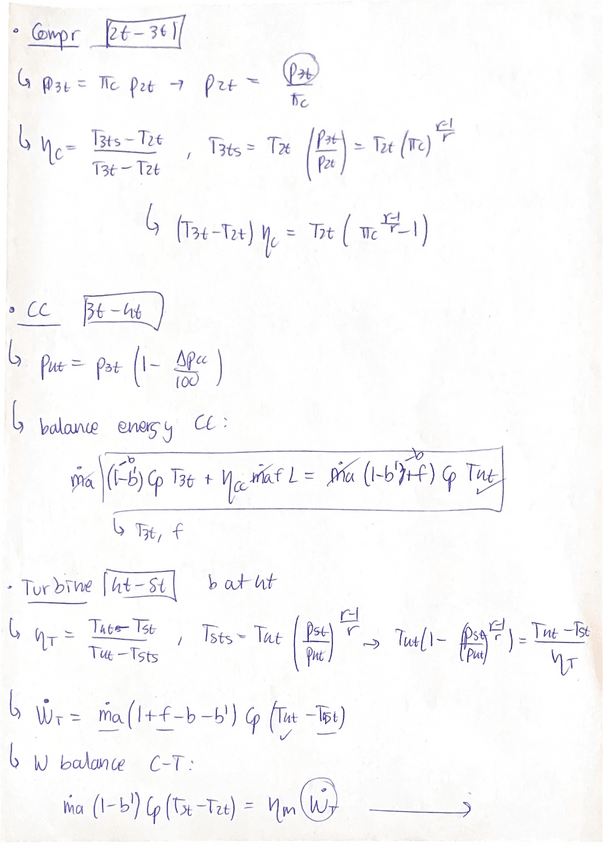 • Compr [2t-3t]
↳ p3t = πc p2t → p2t = p3t/πc
↳ ηc = (T3ts - T2t)/(T3t - T2t) , T3ts = T2t (p3t/p2t) = T2t (πc)^((r-1)/r)
↳ (T3t - T2t) ηc = T2t (πc^((r-1)/r) - 1)
• CC [3t-4t]
↳ p4t = p3t (1 - Δpcc/100)
↳ balance energy CC:
ṁa (1-b'-b) Cp T3t + ηcc ṁa f L = ṁa (1-b'-b+f) Cp T4t
↳ T3t, f
• Turbine [4t-5t] b at 4t
↳ ηT = (T4t - T5t)/(T4t - T5ts) , T5ts = T4t (p5t/p4t)^((r-1)/r) → T4t(1 - (p5t/p4t)^((r-1)/r)) = (T4t - T5t)/ηT
↳ ẆT = ṁa (1+f-b-b') Cp (T4t - T5t)
↳ W balance C-T:
ṁa (1-b') Cp (T3t - T2t) = ηm ẆT →